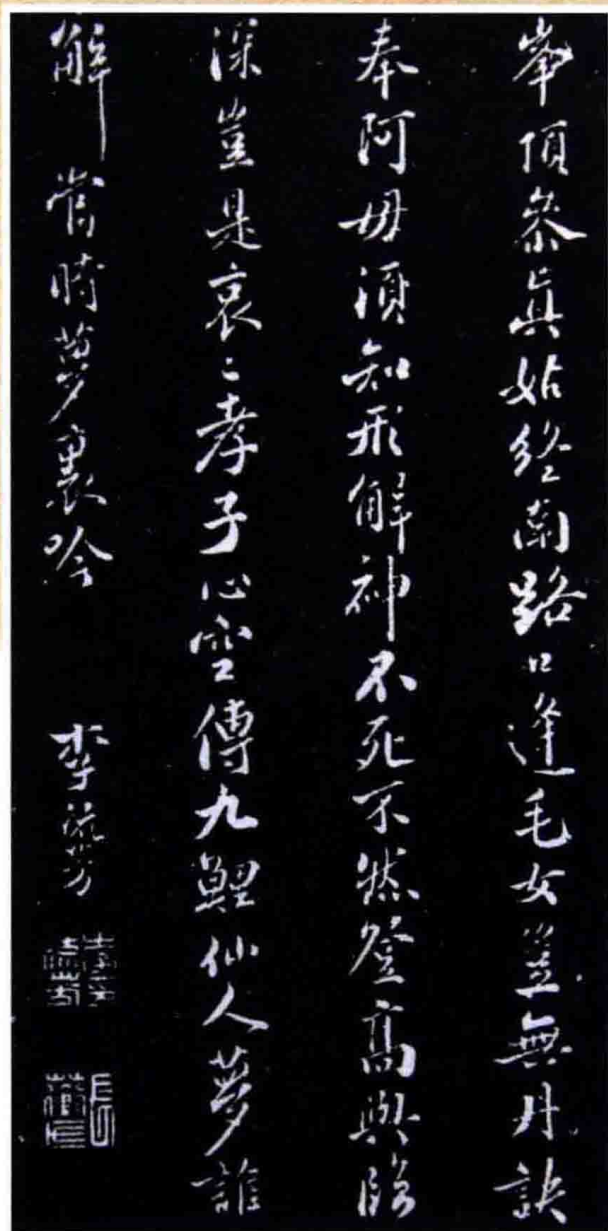 峯頂叅眞姑終南路口逢毛女豈無丹訣
奉阿母須知形解神不死不然登高與臨
深豈是哀〻孝子心空傳九鯉仙人夢誰
解當時夢裏吟
李流芳